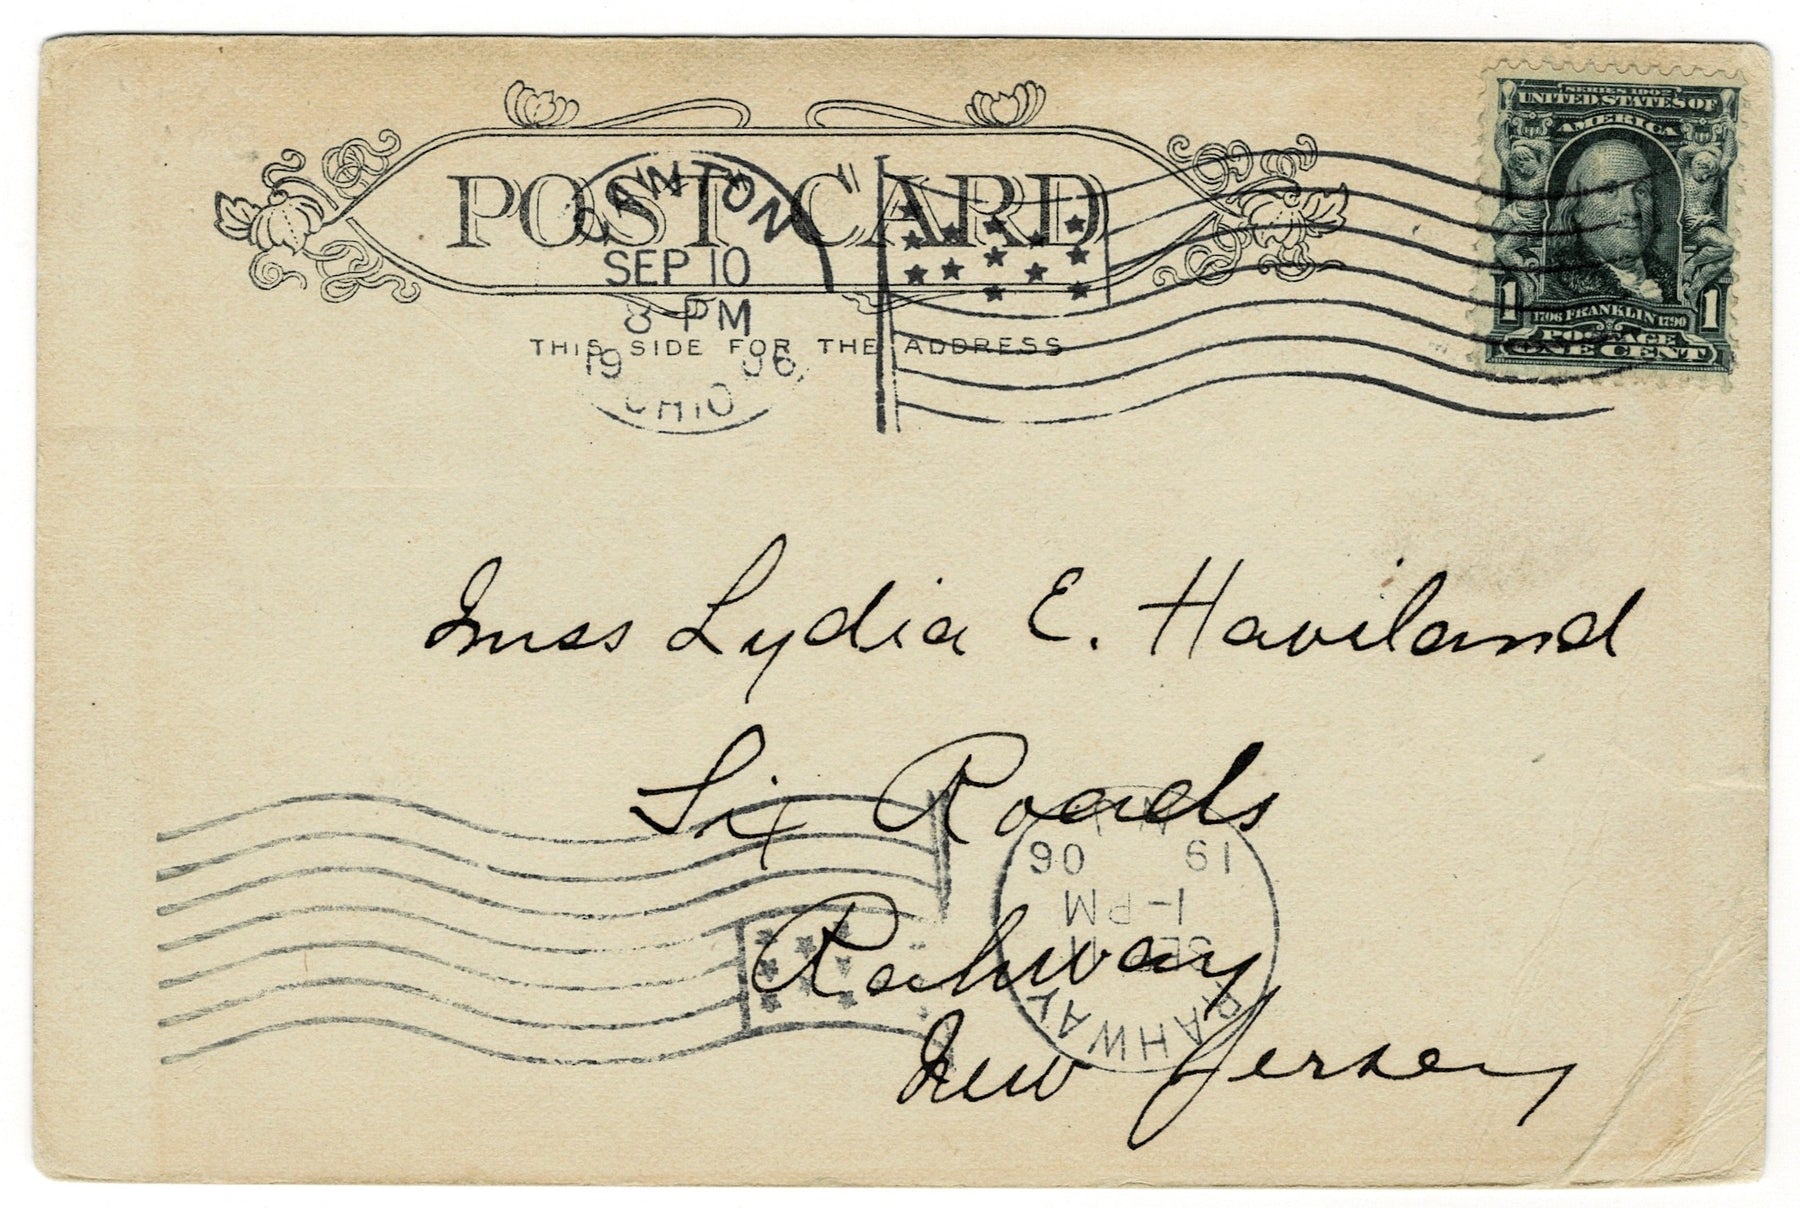 POST CARD
SEP 10
8-PM
19 06
OHIO
THIS SIDE FOR THE ADDRESS
SERIES 1902
UNITED STATES OF
AMERICA
1 1706 FRANKLIN 1790 1
POSTAGE
ONE CENT
Miss Lydia E. Haviland
Six Roads
Rahway
New Jersey
RAHWAY
1-PM
19 06